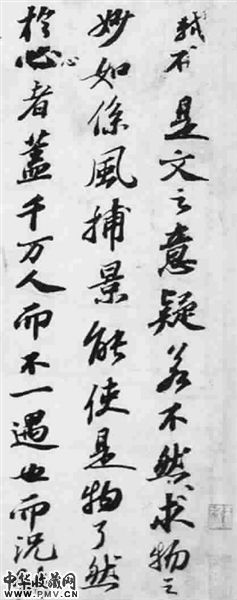 是文之意疑若不然求物之
妙如係風捕景能使是物了然
於心心者蓋千万人而不一遇也而況
中华收藏网
WWW.PMV.CN